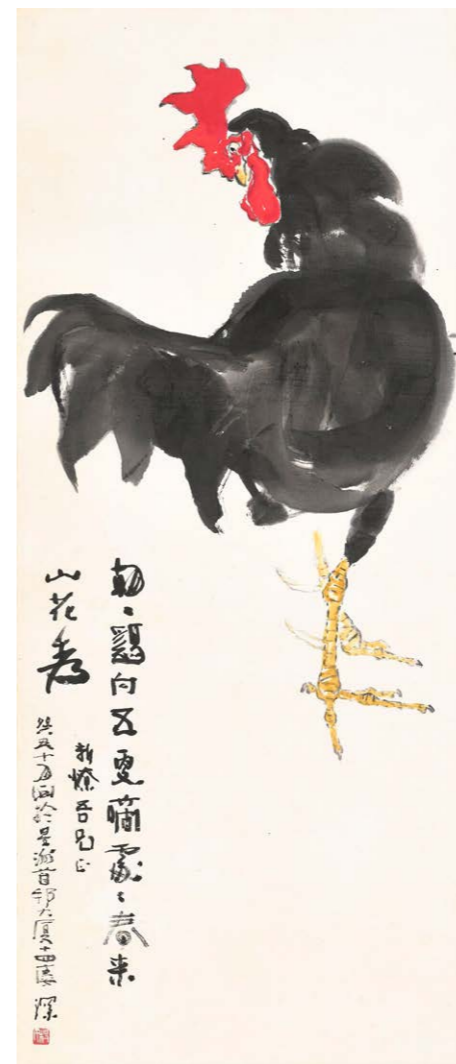 朝〻鷄向五更啼處〻春来
山花
新燎吾兄正
癸丑十於星洲首都大厦十四樓